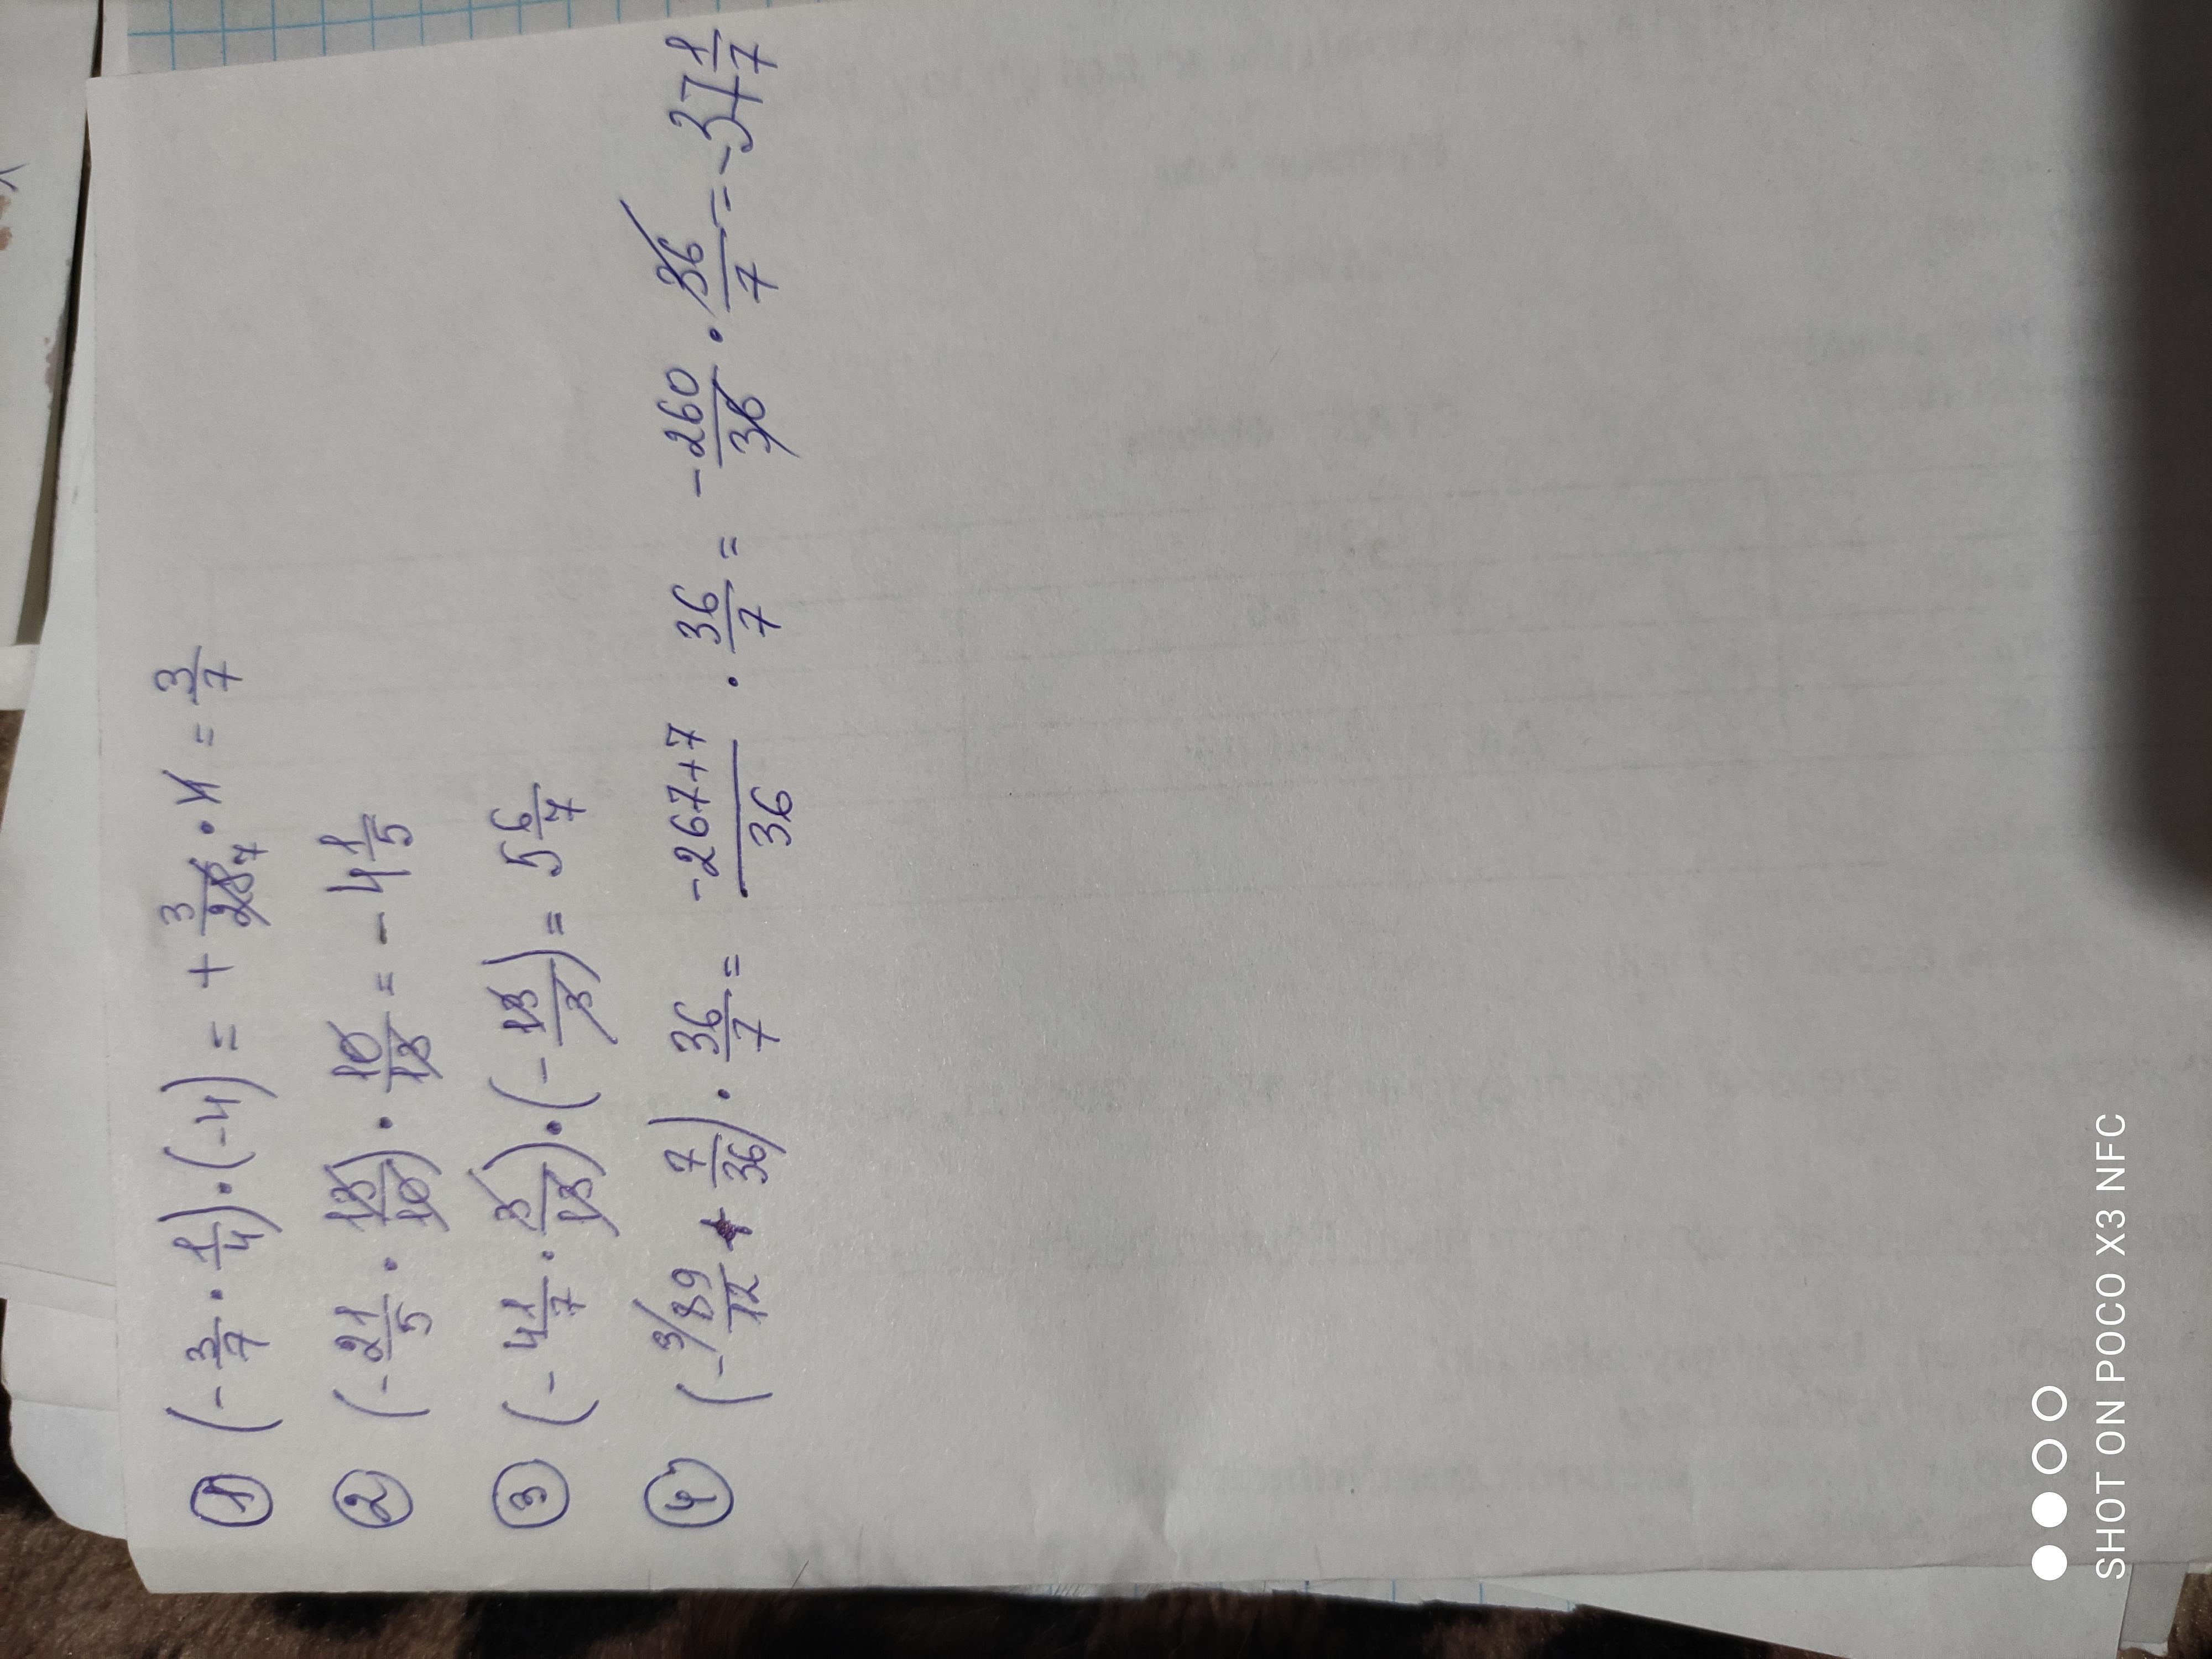 ① (- 3/7 · 1/4) · (-4) = + 3/28 7 · 4 = 3/7
② (- 21/5 · 13/10) · 10/13 = - 4 1/5
③ (- 41/7 · 3/13) · (- 13/3) = 5 6/7
④ (- 3/ 89/12 + 7/36) · 36/7 = -267+7/36 · 36/7 = - 260/36 · 36/7 = -37 1/7
SHOT ON POCO X3 NFC